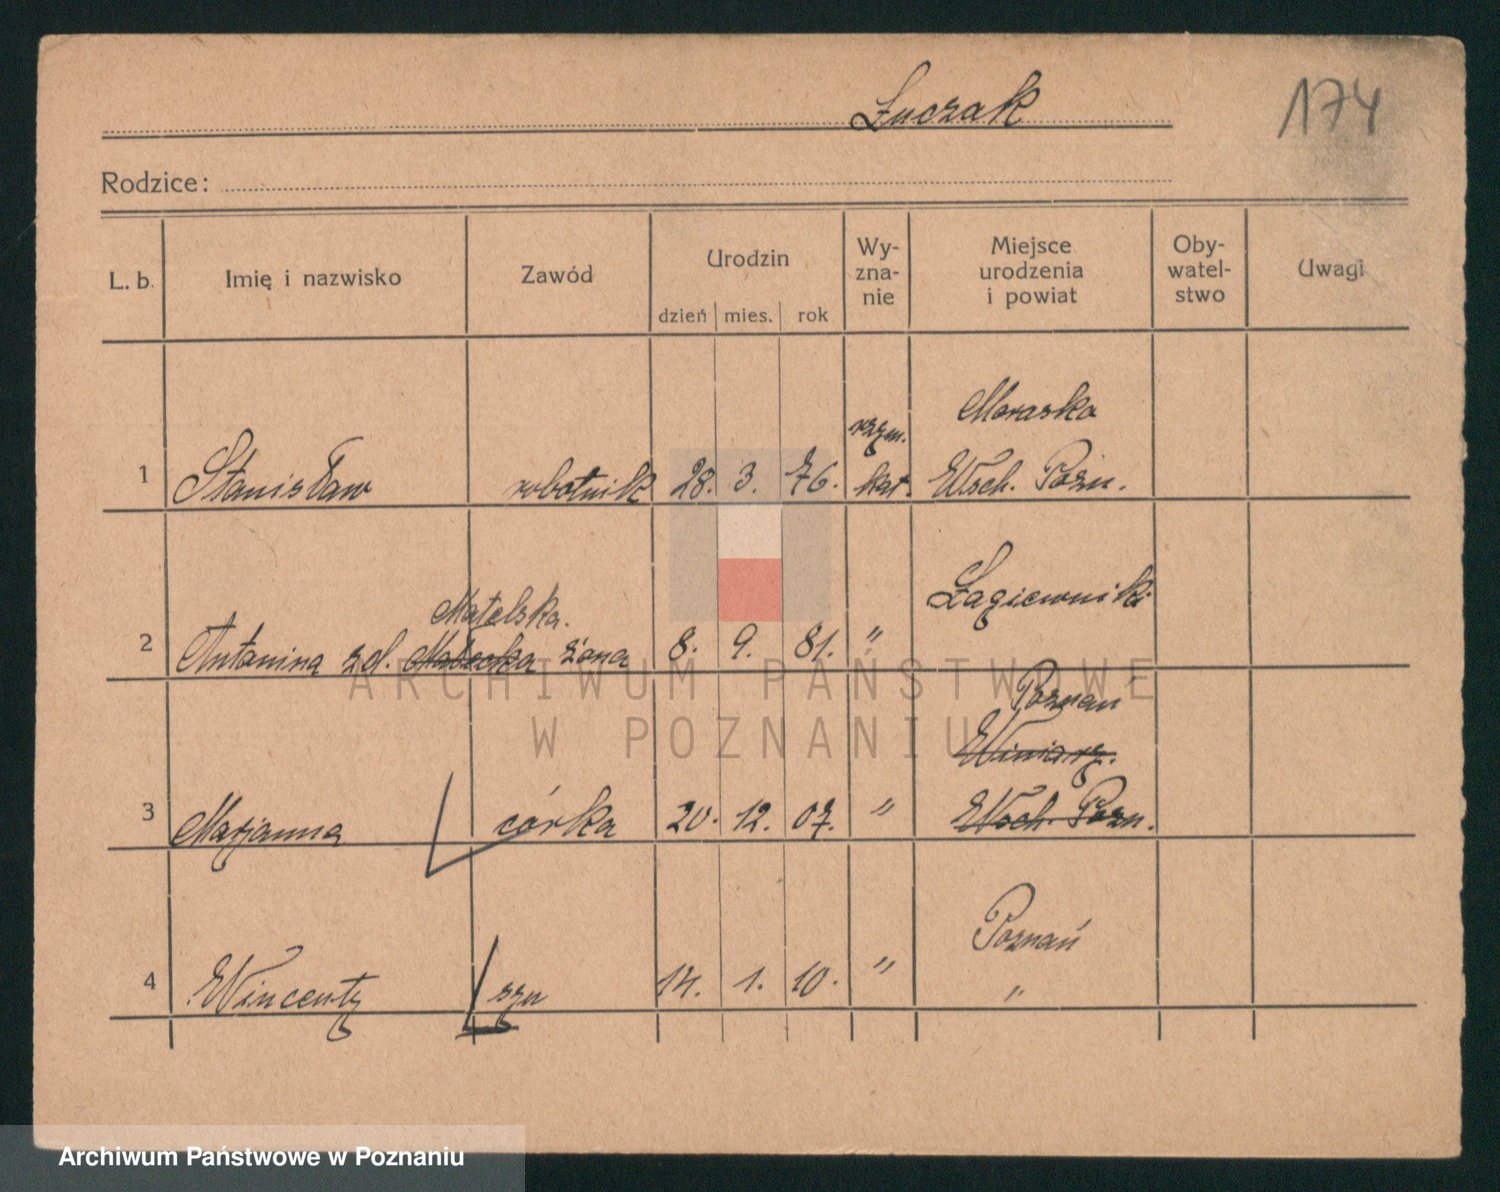 Łuczak
174
Rodzice:
L. b. Imię i nazwisko Zawód Urodzin Wy-zna-nie Miejsce urodzenia i powiat Oby-watel-stwo Uwagi
dzień mies. rok
Moraska
rzym.
1 Stanisław robotnik 28. 3. 76. kat. Wsch. Pozn.
Łagiewniki
Matelska.
2 Antonina zd. Małecka żona 8. 9. 81. "
Poznań
Winiary.
3 Marjanna córka 20. 12. 07. " Wsch. Pozn.
Poznań
4 Wincenty syn 14. 1. 10. " "
ARCHIWUM PAŃSTWOWE
W POZNANIU
Archiwum Państwowe w Poznaniu